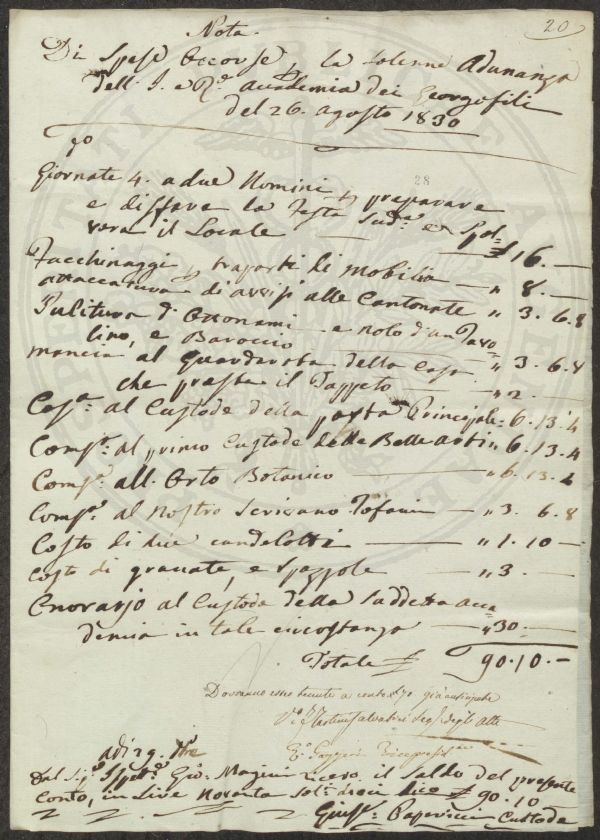 20
Nota
Di Spese Occorse p. la Solenne Adunanza
dell. I. e R.e Accademia dei Georgofili
del 26. Agosto 1830
28
Giornate 4. a due Uomini p. preparare
e disfare la Festa
vera il Locale £ 16. —
Facchinaggi p. trasporti di Mobilia — „ 8. —
attaccatura di avvisi alle Cantonate „ 3. 6. 8
Pulitura d'Ottonami e nolo d'un Tavo
lino, e Baroccio — „ 3. 6. 8
mancia al Guardaroba della Casa
che presta il Tappeto — „ 2 —
al Custode della porta Principale „ 6. 13. 4
Comp.e al primo Custode delle Belle arti „ 6. 13. 4
Comp.e all. Orto Botanico — „ 6. 13. 4
Comp.e al nostro Scrivano Tofani — „ 3. 6. 8
Costo di due candelotti — „ 1. 10 —
Costo di granate, e Spazzole — „ 3 —
Onorario al Custode della Suddetta Acca
demia in tale circostanza — „ 30. —
Totale £ 90. 10. —
Dovranno esser tenute a conto £ 70 già anticipate
Segr. degli Atti
Vicepresid.
Dal Sig. Giu. Magini ricevo il Saldo del presente
Conto, in Lire Novanta Soldi dieci £ 90. 10 —
Custode